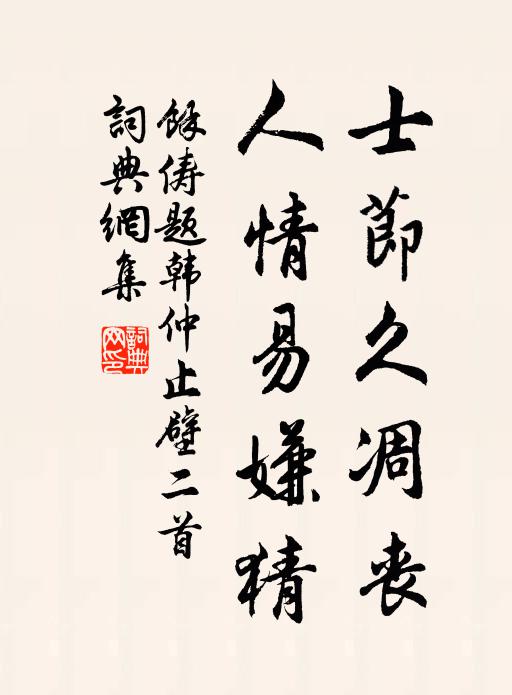 士節久凋喪
人情易嫌猜
餘俦题韩仲止壁二首
詞典網集
詞典網印